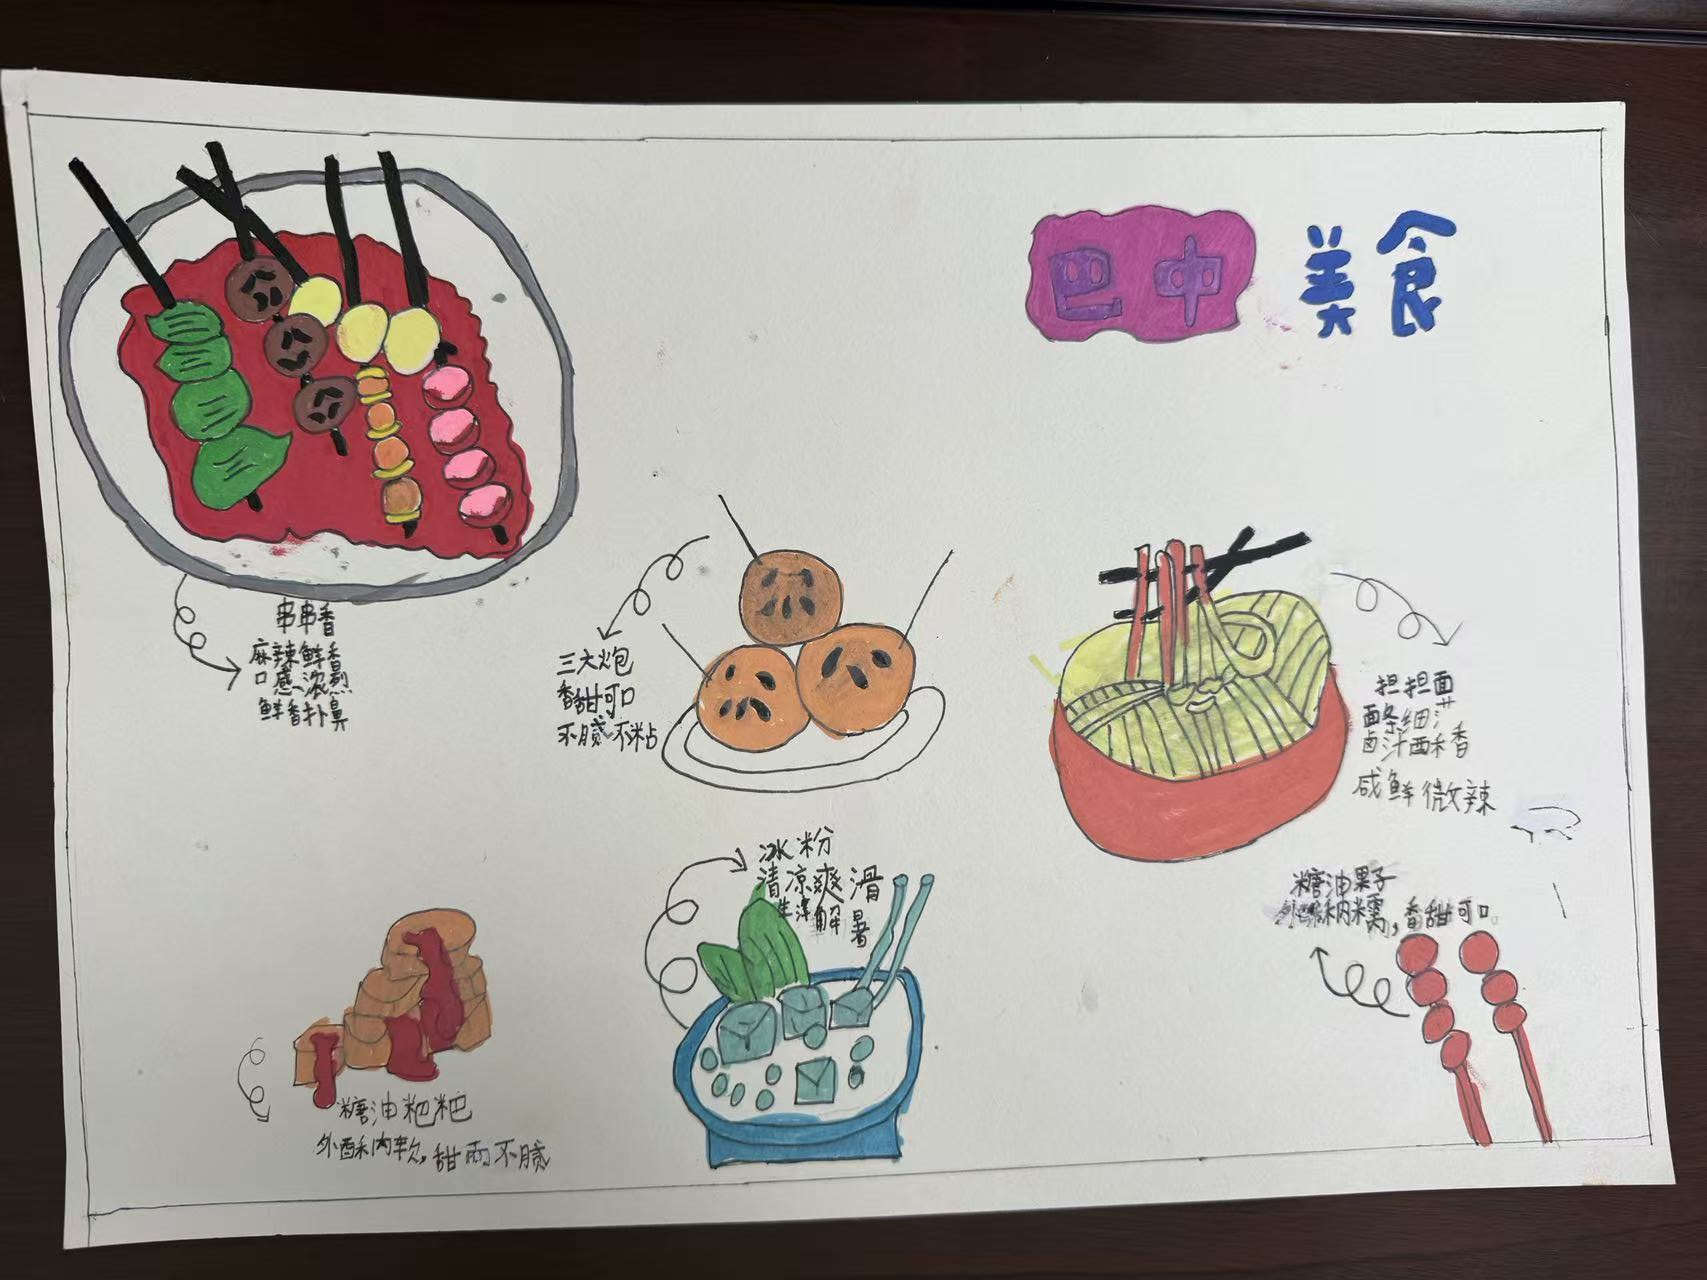 巴中美食
串串香
麻辣鲜香
口感浓烈
鲜香扑鼻
三大炮
香甜可口
不腻不粘
担担面
面条细
卤汁酥香
咸鲜微辣
冰粉
清凉爽滑
生津解暑
糖油果子
外酥内糯,香甜可口
糖油粑粑
外酥内软,甜而不腻